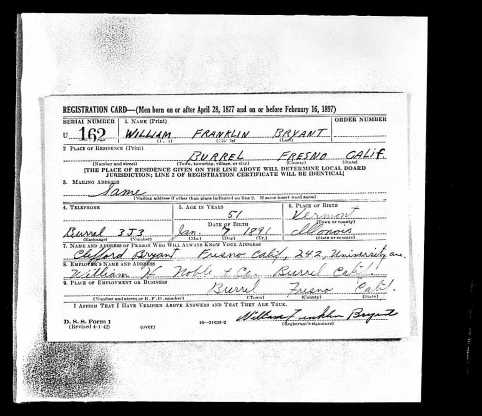 REGISTRATION CARD—(Men born on or after April 28, 1877 and on or before February 16, 1897)
SERIAL NUMBER 1. NAME (Print) ORDER NUMBER
U 162 WILLIAM FRANKLIN BRYANT
(First) (Middle) (Last)
2. PLACE OF RESIDENCE (Print)
BURREL FRESNO CALIF.
(Number and street) (Town, township, village, or city) (County) (State)
[THE PLACE OF RESIDENCE GIVEN ON THE LINE ABOVE WILL DETERMINE LOCAL BOARD
JURISDICTION; LINE 2 OF REGISTRATION CERTIFICATE WILL BE IDENTICAL]
3. MAILING ADDRESS
Same
[Mailing address if other than place indicated on line 2. If same insert word same]
4. TELEPHONE 5. AGE IN YEARS 6. PLACE OF BIRTH
51 Vermont
DATE OF BIRTH (Town or county)
Burrel 3J3 Jan. 9 1891 Illinois
(Exchange) (Number) (Mo.) (Day) (Yr.) (State or country)
7. NAME AND ADDRESS OF PERSON WHO WILL ALWAYS KNOW YOUR ADDRESS
Clifford Bryant Fresno Calif, 242, University ave.
8. EMPLOYER'S NAME AND ADDRESS
William H. Noble & Co. Burrel Calif.
9. PLACE OF EMPLOYMENT OR BUSINESS
Burrel Fresno Calif.
(Number and street or R. F. D. number) (Town) (County) (State)
I AFFIRM THAT I HAVE VERIFIED ABOVE ANSWERS AND THAT THEY ARE TRUE.
D. S. S. Form 1 William Franklin Bryant
(Revised 4-1-42) (over) 16—21630-2 (Registrant's signature)